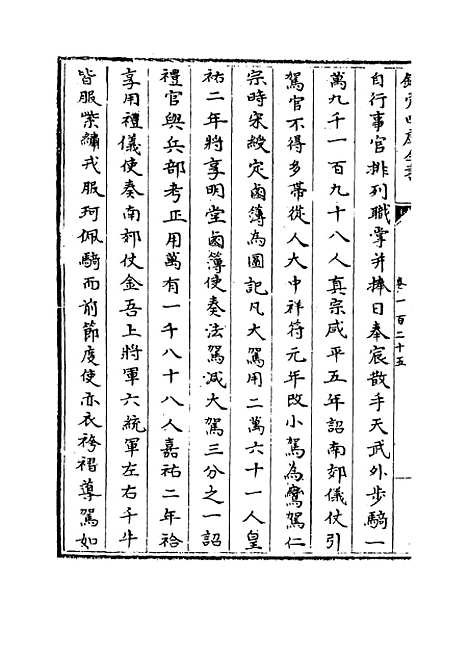 欽定四庫全書
卷一百二十五
自行事官排列職掌并捧日奉宸散手天武外步騎一
萬九千一百九十八人真宗咸平五年詔南郊儀仗引
駕官不得多帶從人大中祥符元年改小駕為鸞駕仁
宗時宋綬定鹵簿為圖記凡大駕用二萬六十一人皇
祐二年將享明堂鹵簿使奏法駕減大駕三分之一詔
禮官與兵部考正用萬有一千八十八人嘉祐二年祫
享用禮儀使奏南郊仗金吾上將軍六統軍左右千牛
皆服紫繡戎服珂佩騎而前節度使亦衣袴褶導駕如